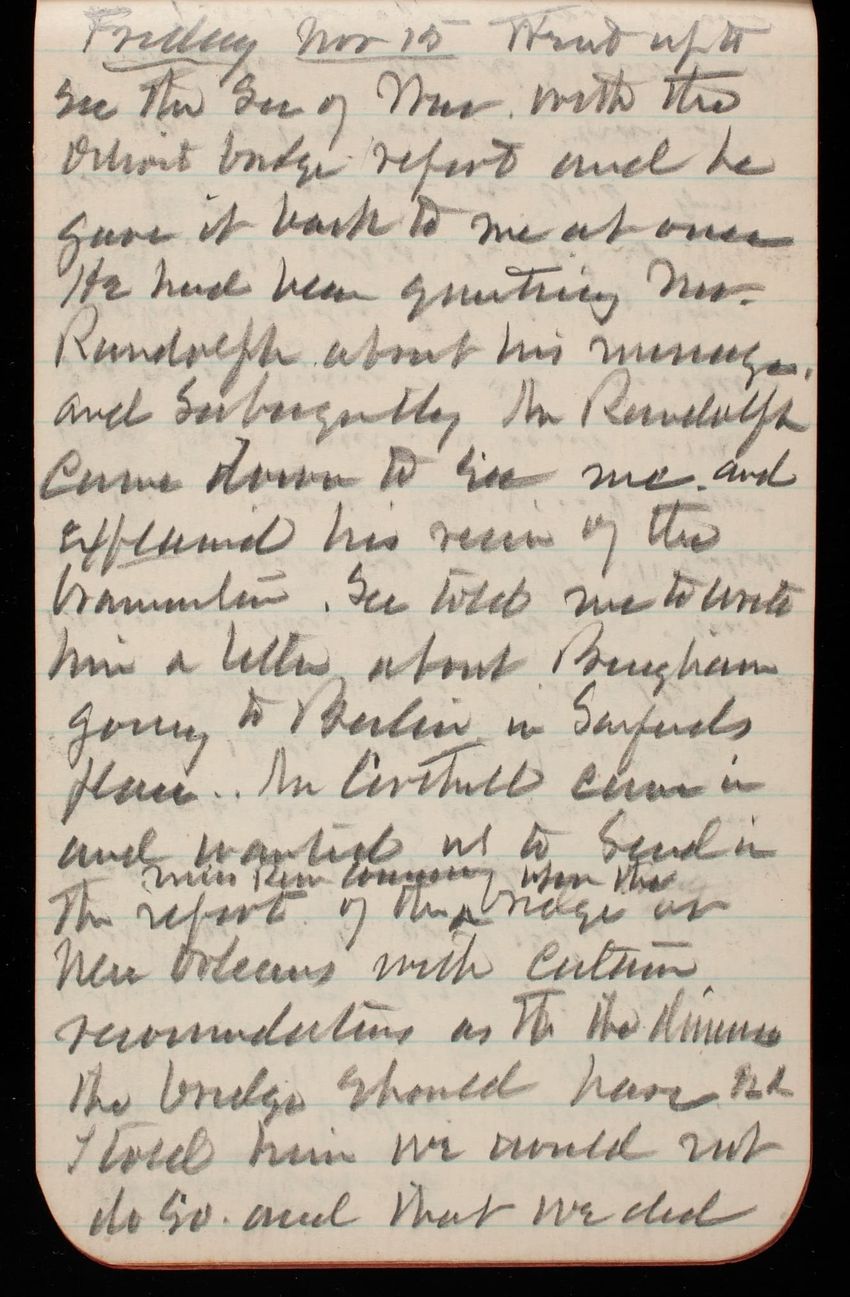 Friday Nov 15 Went up to
see the Sec of War. with the
Detroit bridge report and he
gave it back to me at once
He had been Mr.
Randolph about his message,
and Mr Randolph
came down to see me. and
explained his view of the
. Sec told me to write
him a letter about Bingham
going to Berlin in
place.. Mr Corthell came in
and wanted us to send in
Miss River Commission upon the
the report of the bridge at
New Orleans with certain
as to the
the bridge should have
I told him we would not
do so. and that we did